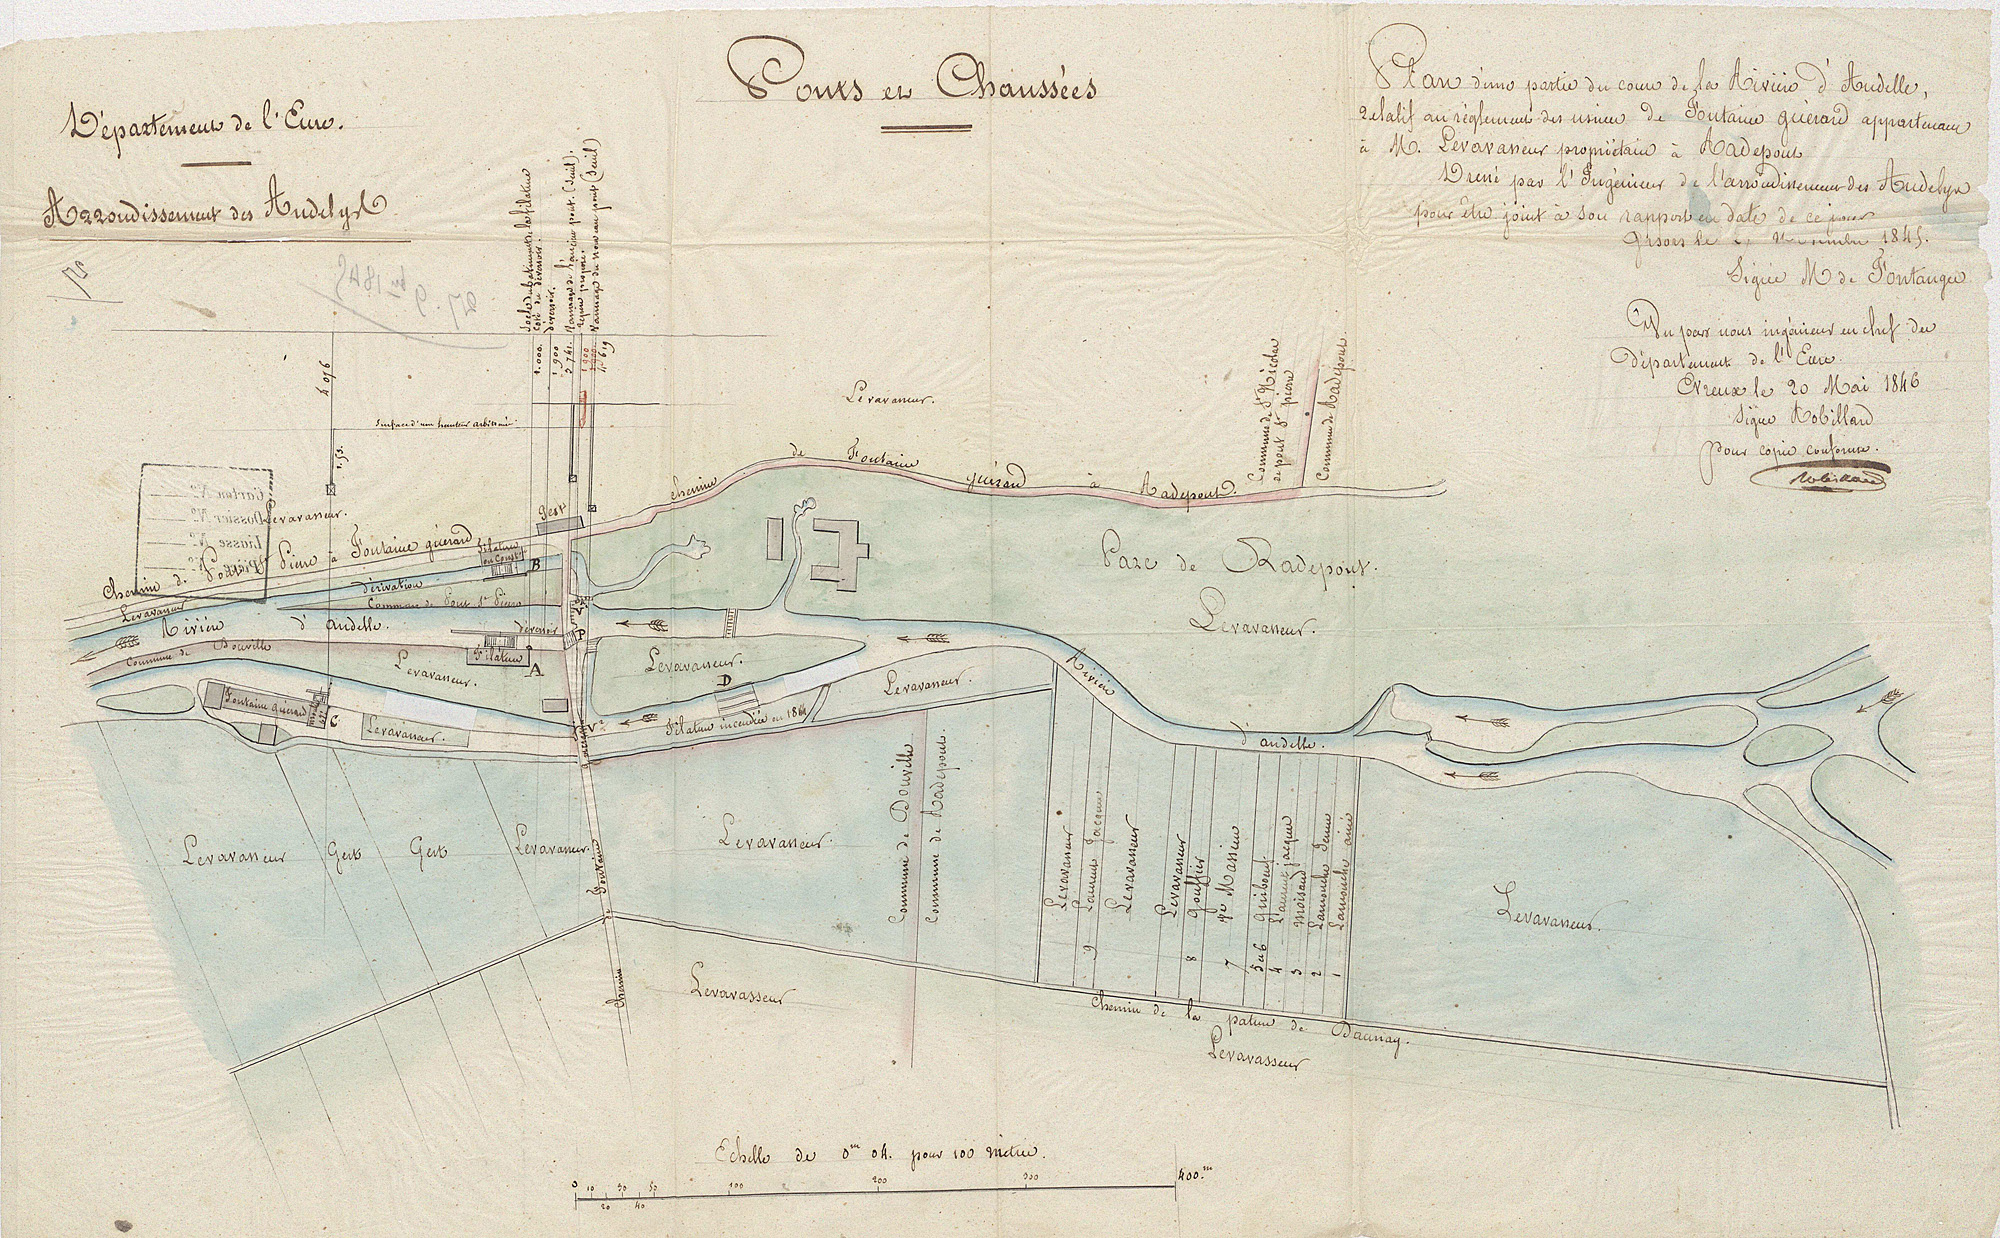 Ponts et Chaussées
Département de l'Eure.
Arrondissement des Andelys
Plan d'une partie du cours de la Rivière d'Andelle,
relatif au règlement des usines de Fontaine guérard appartenant
à M. Levavasseur propriétaire à Radepont
Dressé par l'Ingénieur de l'arrondissement des Andelys
pour être joint à son rapport en date de ce jour
Gisors le 1845.
Signé M de Fontanges
Vu par nous ingénieur en chef du
Département de l'Eure.
Evreux le 20 Mai 1846
Signé Robillard
pour copie conforme.
Robillard
27. 9bre 1845
Socle du batiment de la filature
coté du déversoir.
déversoir.
Radier de l'ancien pont (seuil).
repère proposé.
Vannage du nouveau pont (seuil)
1.000.
1.900
2.741.
1.900
4.619
4.076
1.53.
Surface d'une hauteur arbitraire
Levavasseur.
Commune de St Nicolas
de pont St pierre
Commune de Radepont
chemin de Fontaine guérard à Radepont.
Carton N°
Dossier N°
Liasse N°
Pièce N°
Levavasseur.
Gest
Chemin de Pont St Pierre à Fontaine guérard
Filature
en Constr
B
dérivation
Commune de Pont St Pierre
Levavasseur
Rivière d'andelle.
déversoir
V
P
Filature
A
Commune de Douville
Levavasseur.
Fontaine Guérard
C
Levavasseur.
Levavasseur.
D
Filature incendiée en 18
V
Levavasseur.
Parc de Radepont.
Levavasseur.
Rivière d'andelle.
Levavasseur
Gest
Gest
Levavasseur.
Fontaine
chemin
Levavasseur.
Commune de Douville
Commune de Radepont.
Levavasseur
Laurent Jacques
9
Levavasseur
Levavasseur
Gouffier
8
Massieu
7
Guibourt
5 et 6
Laurent jacques
4
Moisand
3
Lamouche Jeune
2
Lamouche ainé
1
Levavasseur.
Levavasseur
chemin de la pature de Daunay.
Levavasseur
Echelle de 0m 04. pour 100 mètres.
0 10 20 30 40 50 100 200 300 400.m